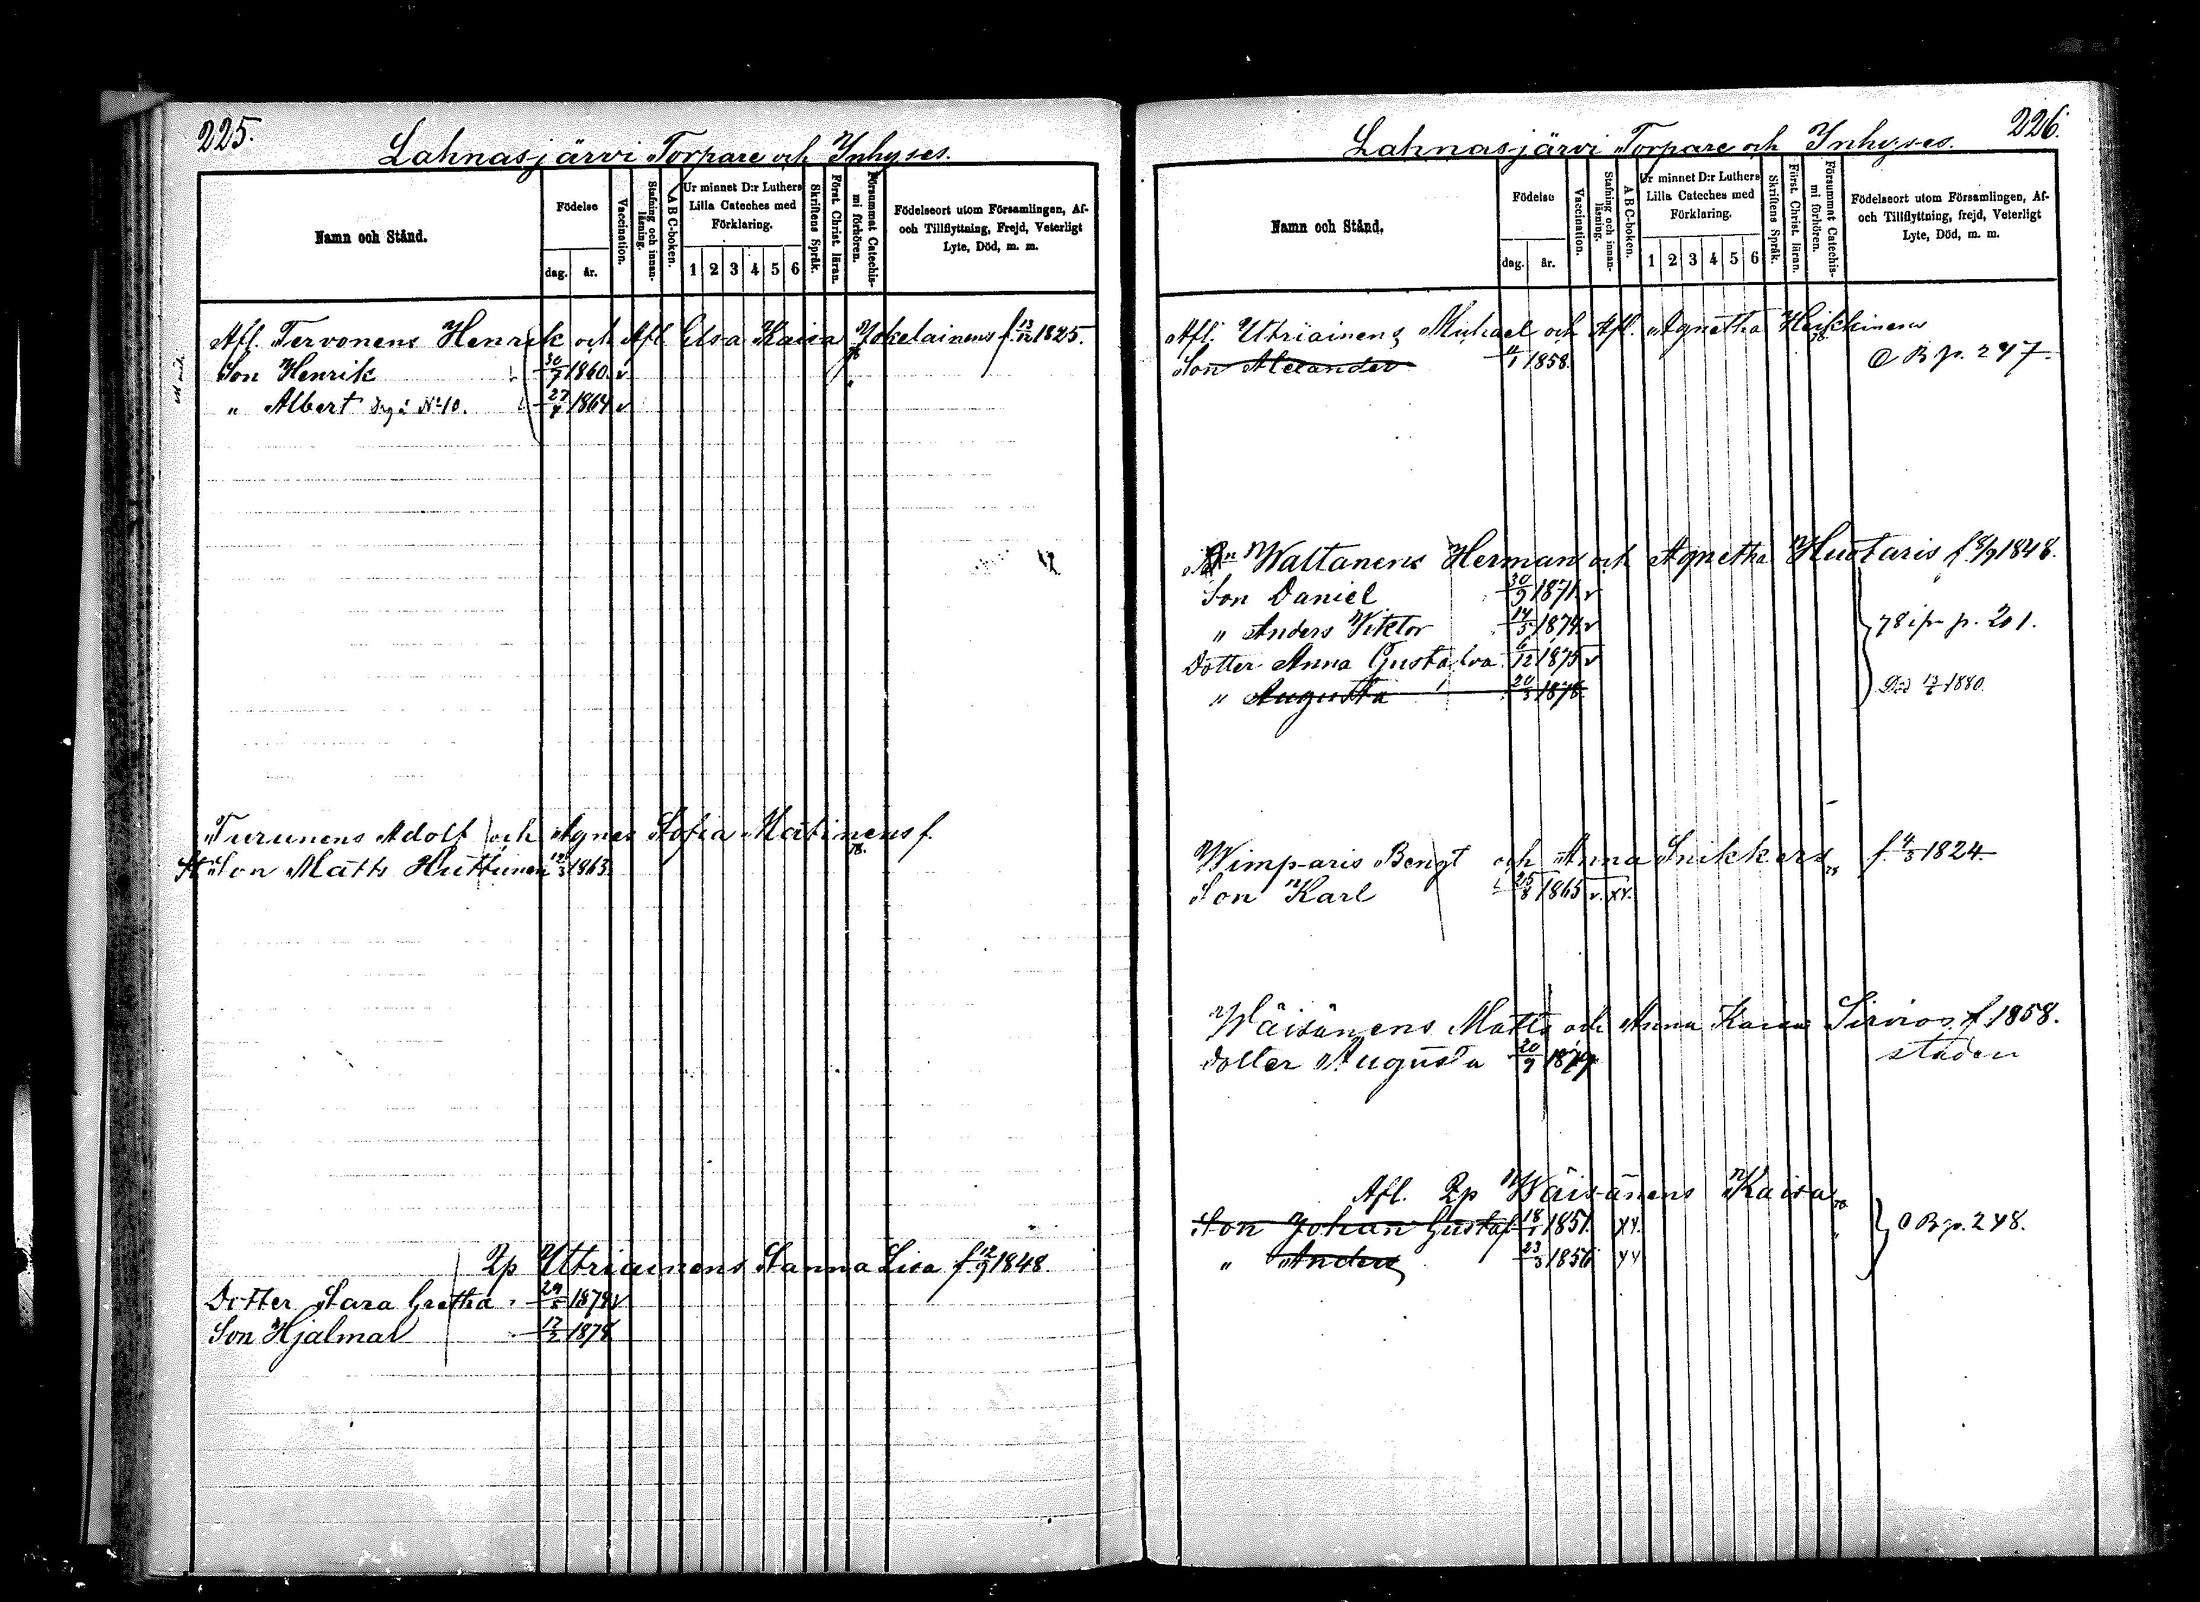 225.
Lahnasjärvi Torpare och Inhyses.
Namn och Stånd.
Födelse
dag. år.
Vaccination.
Stafning och innan-läsning.
ABC-boken.
Ur minnet D:r Luthers Lilla Cateches med Förklaring.
1 2 3 4 5 6
Skriftens Språk.
Först. Christ. läran.
Försummat Catechis-mi förhören.
Födelseort utom Församlingen, Af- och Tillflyttning, Frejd, Veterligt Lyte, Död, m. m.
Afl. Tervonens Henrik och Afl. Elsa Kaisa Jokelainens f. 13/12 1825.
Son Henrik 30/7 1860. v
" Albert No 10. 27/4 1864 v
Turunens Adolf och Agnes Sofia Matinens f.
St. Son Matts Huttunen 1863
Qp Utriainens Sanna Lisa f. 12/9 1848.
Dotter Sara Gretha 1874 v
Son Hjalmar 17/2 1878
226.
Lahnasjärvi Torpare och Inhyses.
Namn och Stånd.
Födelse
dag. år.
Vaccination.
Stafning och innan-läsning.
ABC-boken.
Ur minnet D:r Luthers Lilla Cateches med Förklaring.
1 2 3 4 5 6
Skriftens Språk.
Först. Christ. läran.
Försummat Catechis-mi förhören.
Födelseort utom Församlingen, Af- och Tillflyttning, frejd, Veterligt Lyte, Död, m. m.
Afl. Utriainens Michael och Afl. Agnetha Heikkinens
Son Alexander 1858. B p. 247.
Waltanens Herman och Agnetha Huotaris f. 8/9 1848.
Son Daniel 30/9 1871 v
" Anders Viktor 14/5 1874 v 78 ifr p. 201.
Dotter Anna Gustafva 6/12 1875 v
" Augusta 1878 Död 1880.
Wimparis Bengt och Anna Snikkars f. 4/5 1824
Son Karl 25/8 1865 v. xx.
Wäisänens Matts och Anna Kaisa Sirviös f. 1858.
Dotter Augusta 20/9 1879 staden
Afl. Qp Wäisänens Kaisa
Son Johan Gustaf 18/1 1851. xx. O B p. 248.
" Anders 23/3 1856 xx